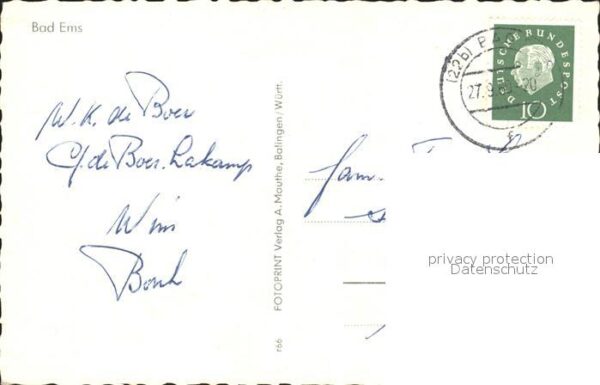 Bad Ems
W. K. de Boer
C. de Boer-Lakamp
Wim
FOTOPRINT Verlag A. Mauthe, Balingen/Württ.
r66
(22b)
27.9.
DEUTSCHE BUNDESPOST
10
Fam.
privacy protection
Datenschutz